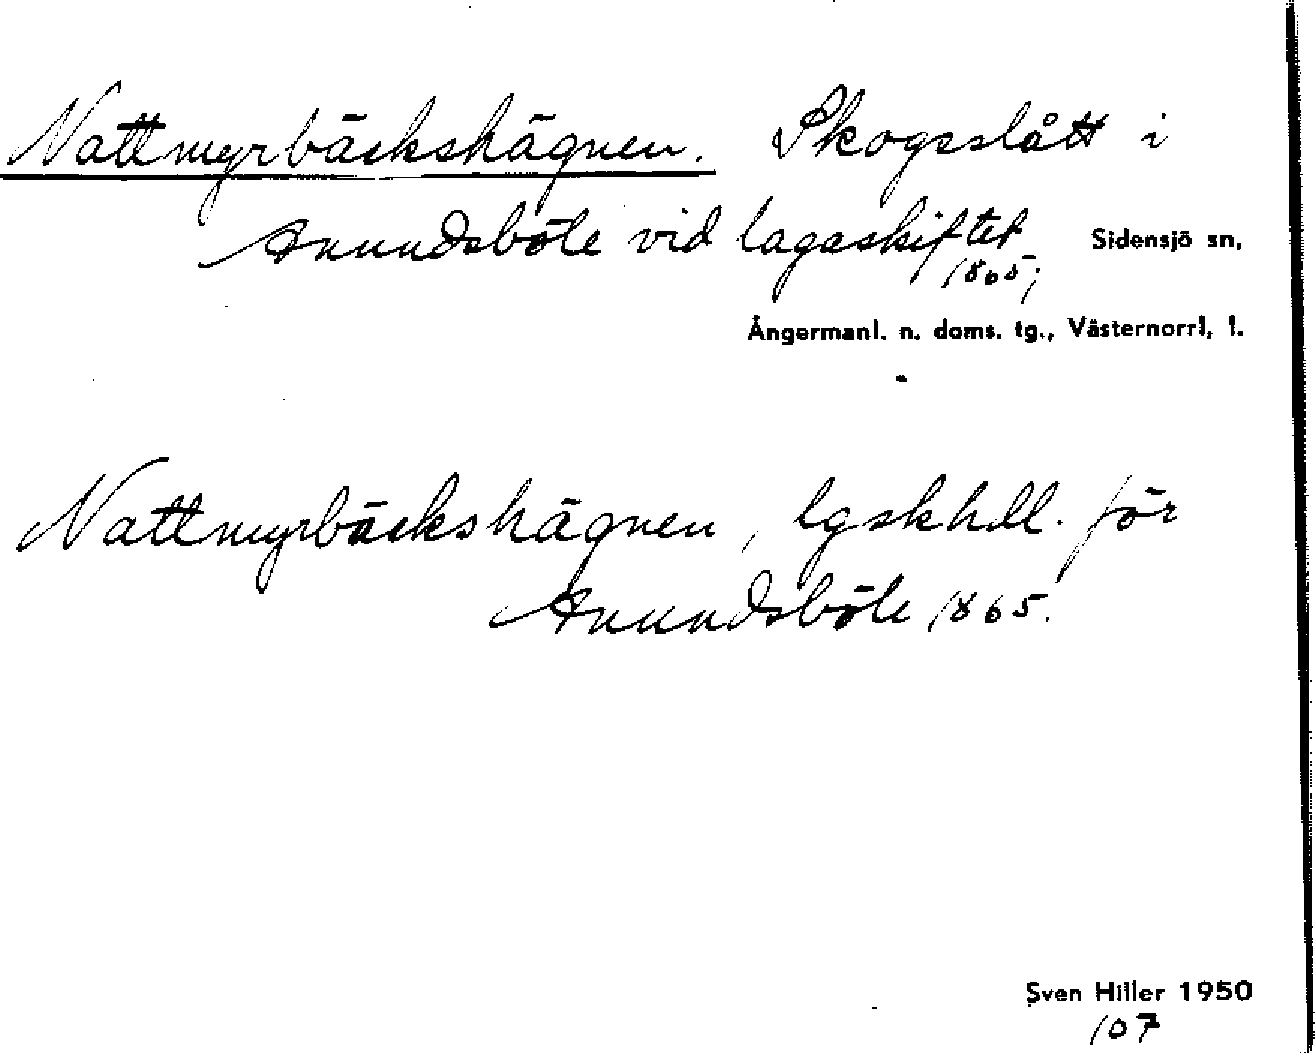 Nattmyrbäckshägnen. Skogsslått i
Anundsböle vid lagaskiftet Sidensjö sn,
1865;
Ångermanl. n. doms. tg., Västernorrl, l.
Nattmyrbäckshägnen, lgskhdl. för
Anundsböle 1865.
Sven Hiller 1950
107